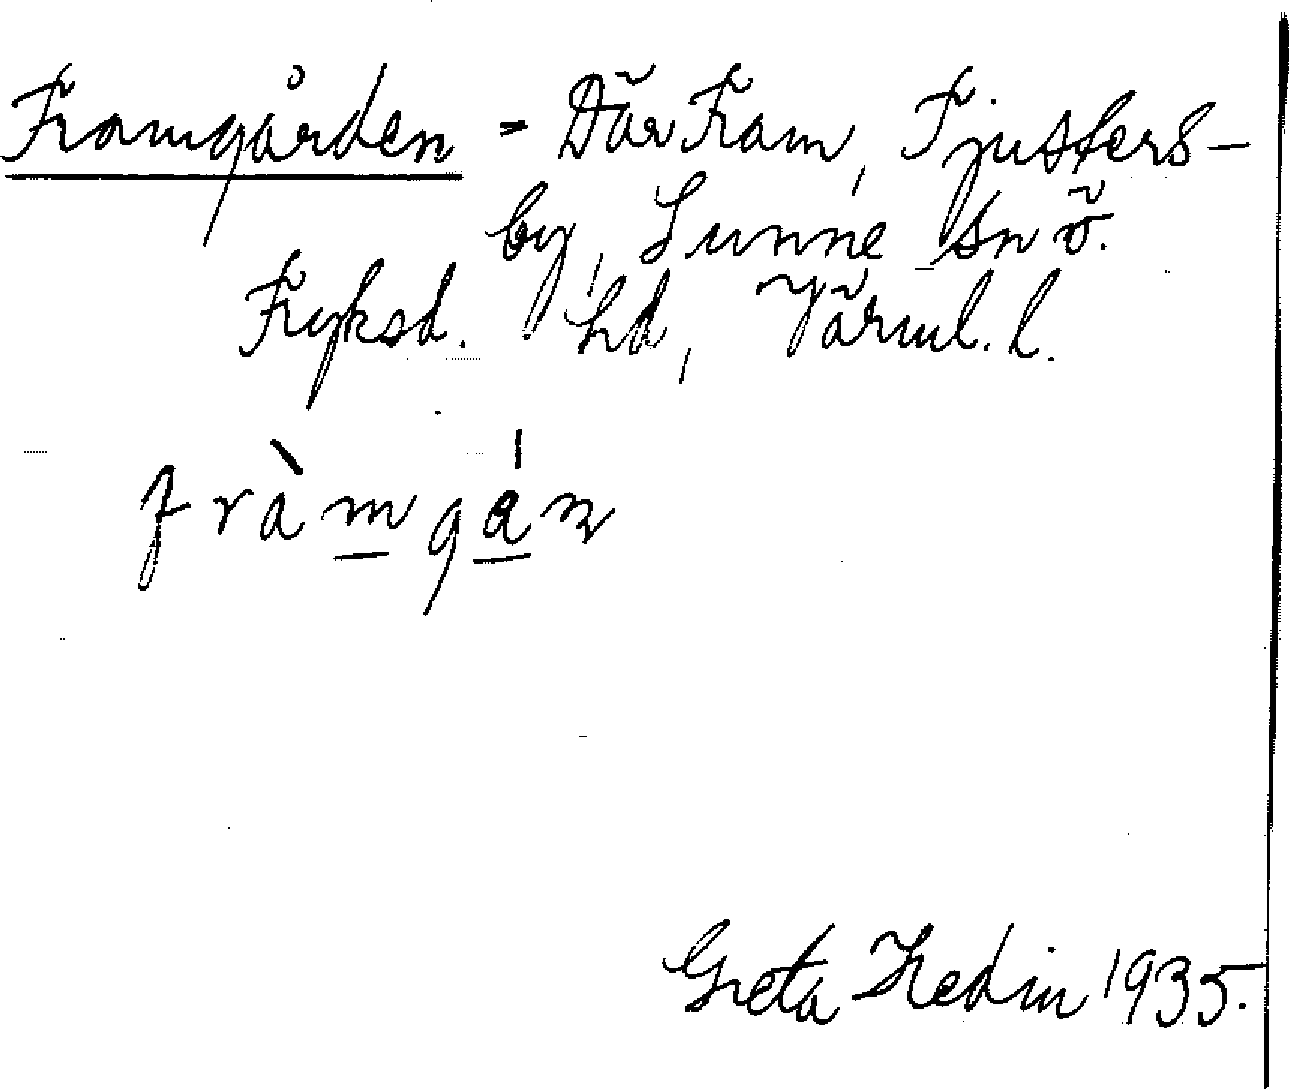 Framgården = Där Fram, Fjusters-
by, Sunne sn ö.
Fryksd. hd, Värml. l.
fràmgán
Greta Hedin 1935.